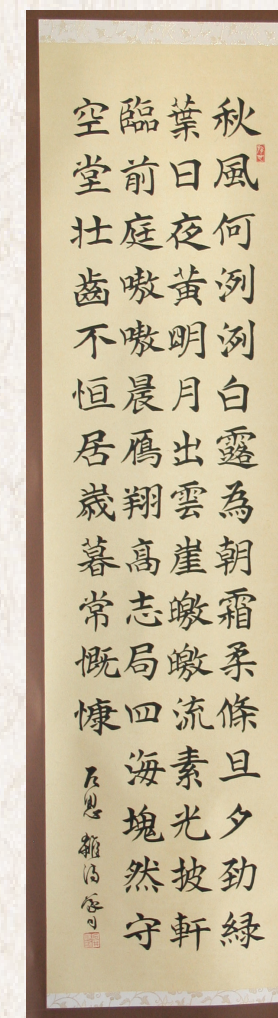 秋風何冽冽白露為朝霜柔條旦夕勁緑
葉日夜黃明月出雲崖皦皦流素光披軒
臨前庭嗷嗷晨鴈翔高志局四海塊然守
空堂壯齒不恒居歲暮常慨慷
左思 雜詩